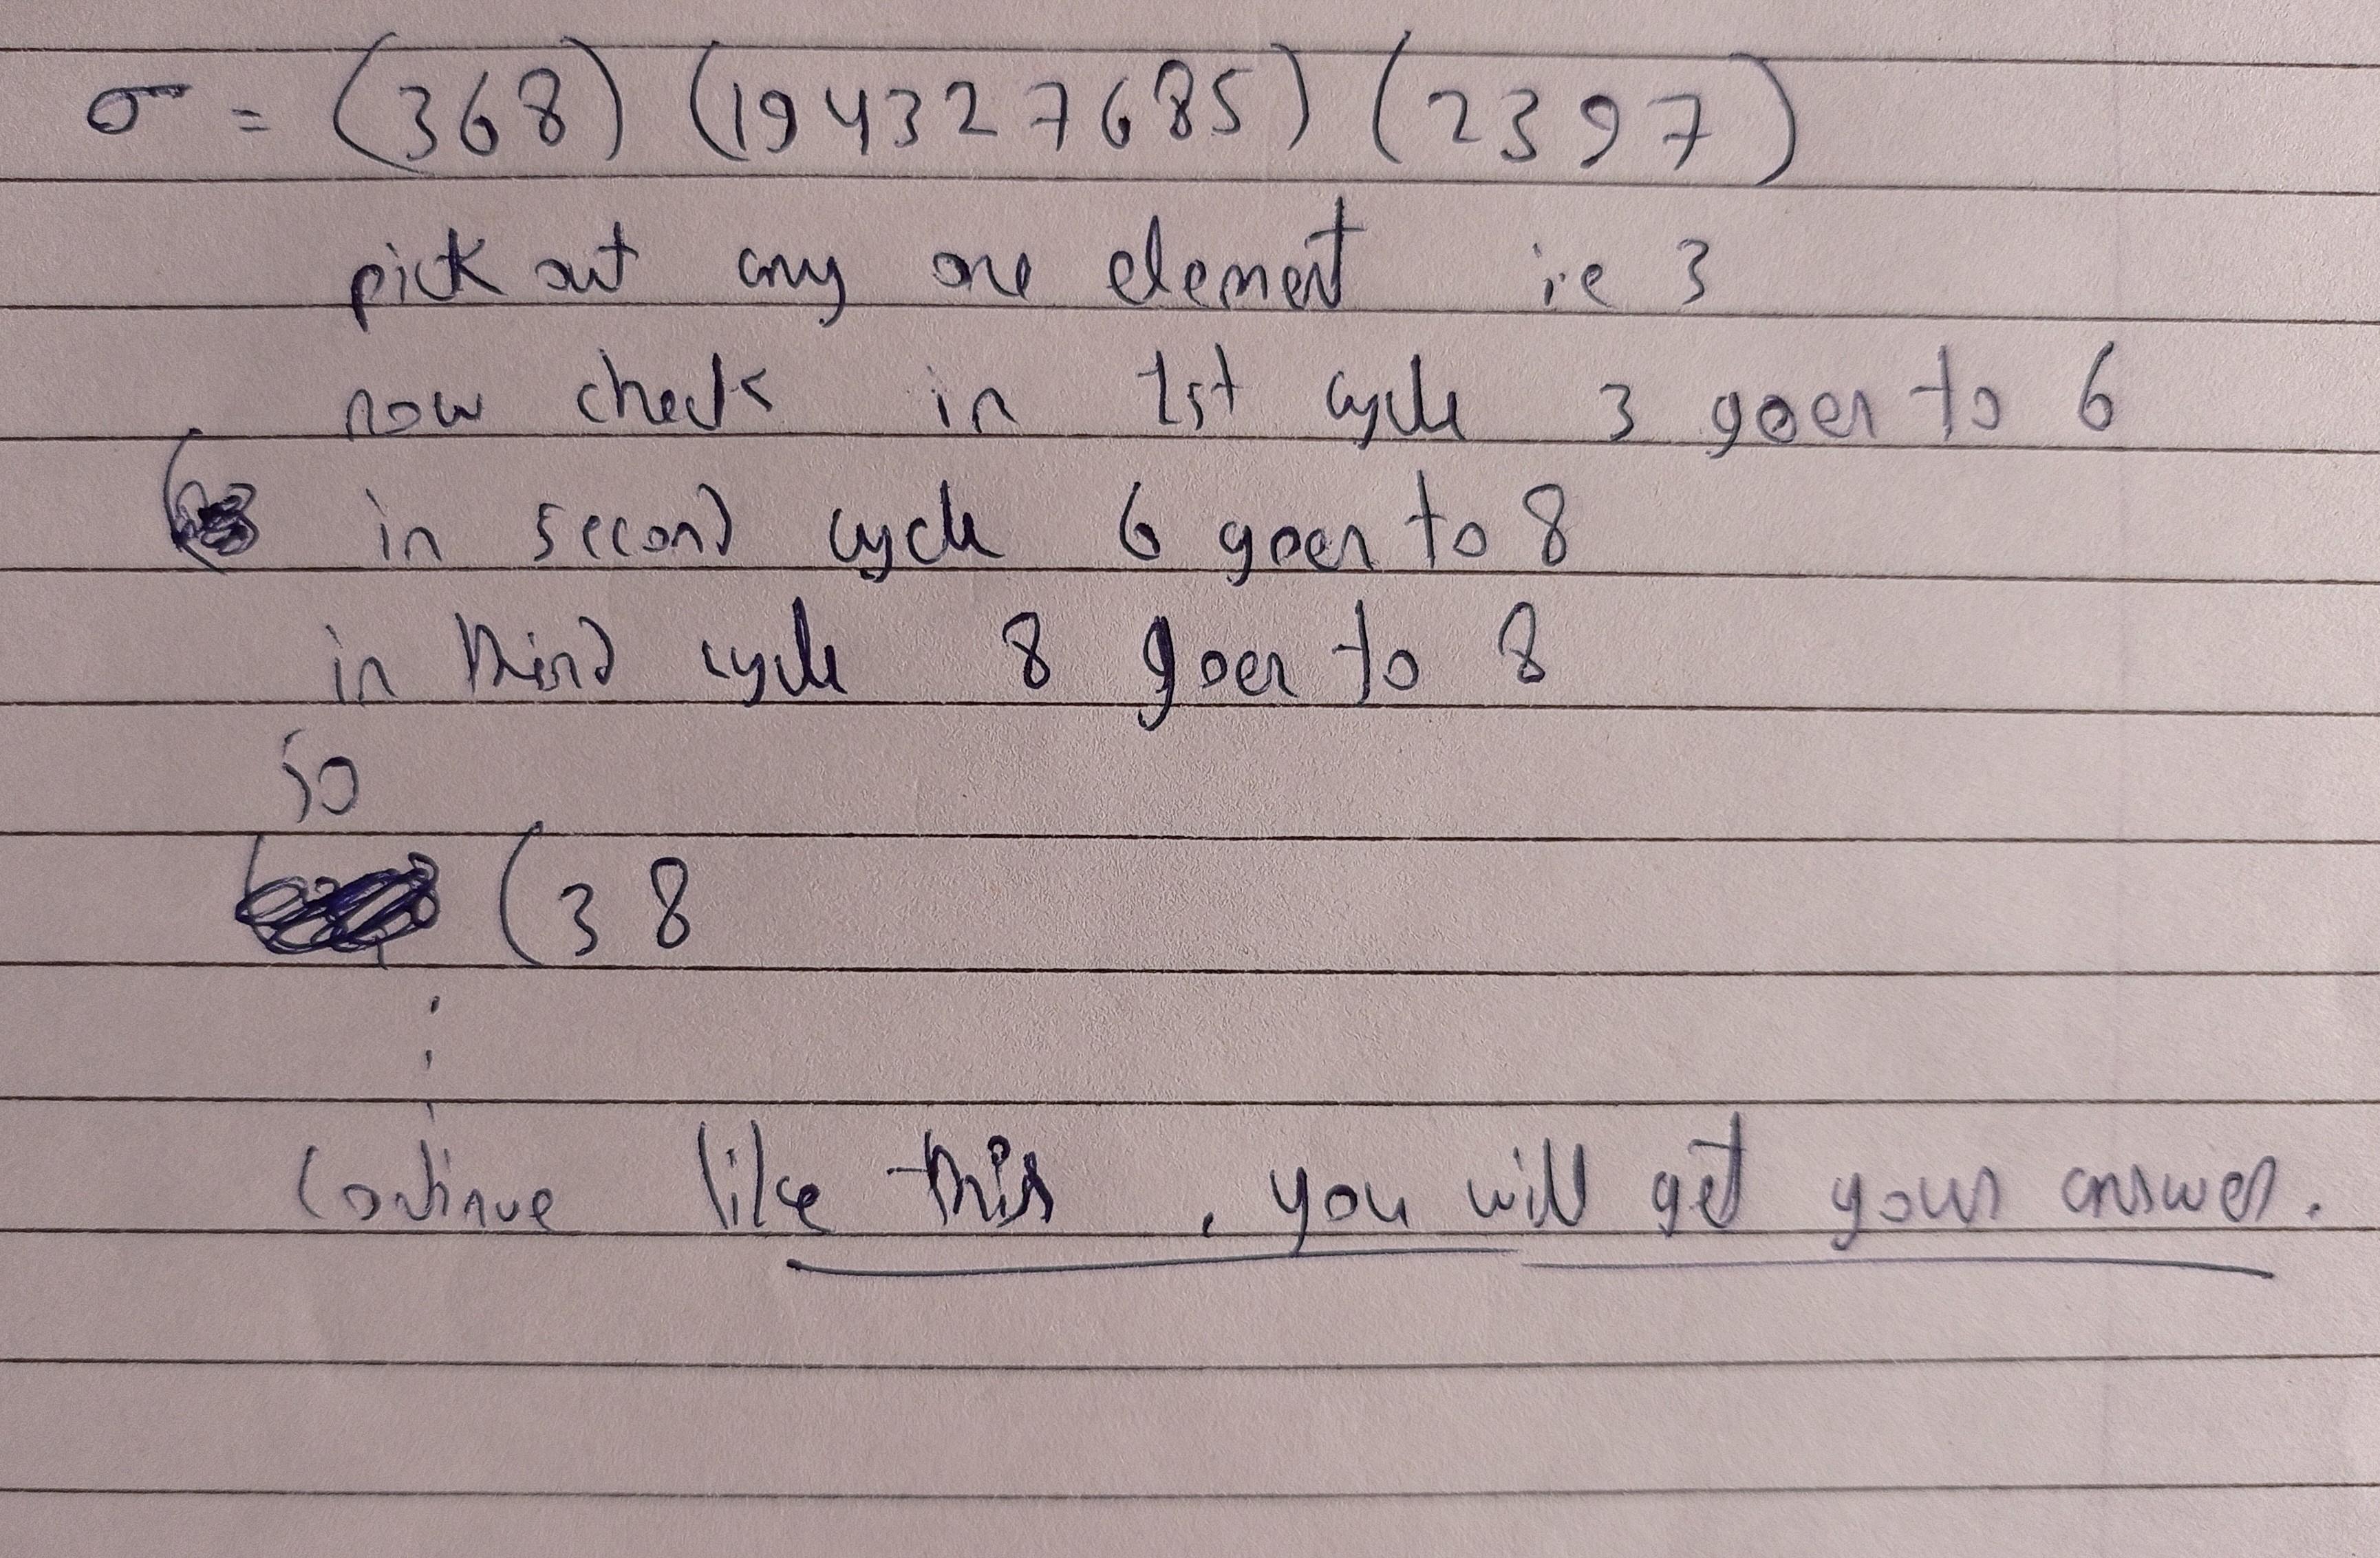 σ = (368) (194327685) (2397)
pick out any one element i.e 3
now check in 1st cycle 3 goes to 6
in second cycle 6 goes to 8
in third cycle 8 goes to 8
so
(38
⋮
continue like this, you will get your answer.